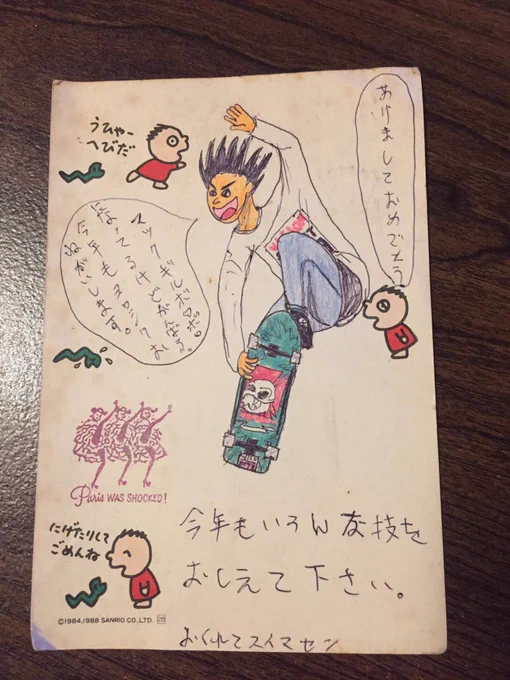 あけましておめでとう
うひゃー
へびだ
マックギルだらけ
なってるけどがんばる。
今年もヨロシクお
ねがいします。
Paris WAS SHOCKED!
にげたりして
ごめんね
今年もいろんな技を
おしえて下さい。
©1984,1988 SANRIO CO.,LTD.
おくれてスイマセン